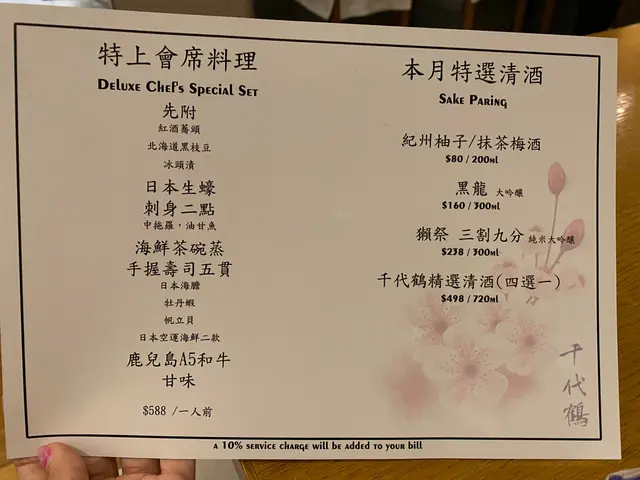 特上會席料理
Deluxe Chef's Special Set
先附
紅酒蕎頭
北海道黑枝豆
冰頭漬
日本生蠔
刺身二點
中拖羅,油甘魚
海鮮茶碗蒸
手握壽司五貫
日本海膽
牡丹蝦
帆立貝
日本空運海鮮二款
鹿兒島A5和牛
甘味
$588 /一人前
本月特選清酒
Sake Paring
紀州柚子/抹茶梅酒
$80 / 200ml
黑龍 大吟釀
$160 / 300ml
獺祭 三割九分 純米大吟釀
$238 / 300ml
千代鶴精選清酒(四選一)
$498 / 720ml
千代鶴
a 10% service charge will be added to your bill